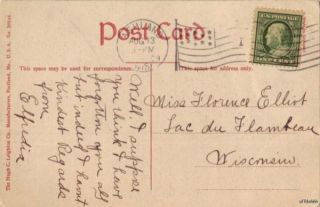 Post Card
AUG 13
This space may be used for correspondence.
This space for address only.
The Hugh C. Leighton Co., Manufacturers, Portland, Me., U.S.A.
ONE CENT
Well I suppose
you think I have
forgotten you all
but indeed I havent
Kindest Regards
from
Elfredia
Miss Florence Elliot
Lac du Flambeau
Wisconsin